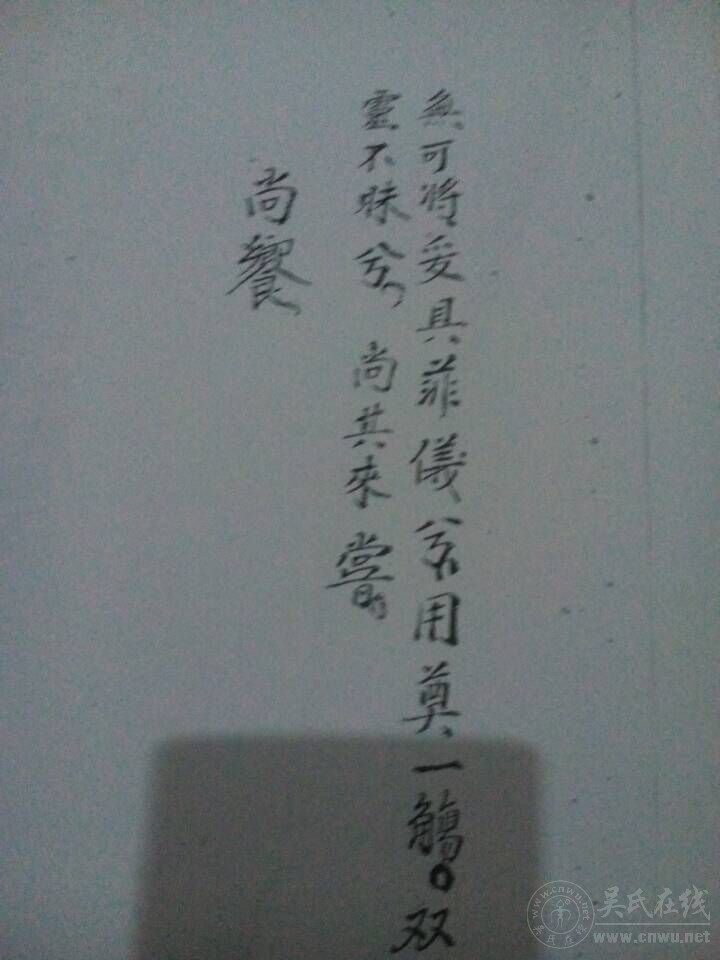 無可將妥具菲儀兮用奠一觴。双
靈不昧兮尚其來嘗
尚饗
吴氏在线
www.cnwu.net